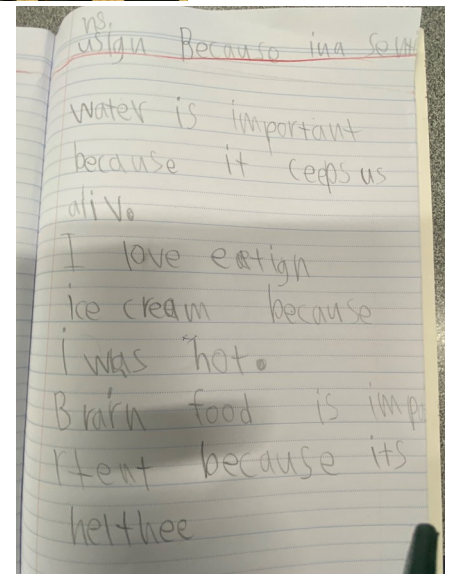 ns.
usign Because ina sent
water is important
because it ceeps us
aliv.
I love eatign
ice cream because
i was hot.
Brain food is impo
rtent because its
helthee